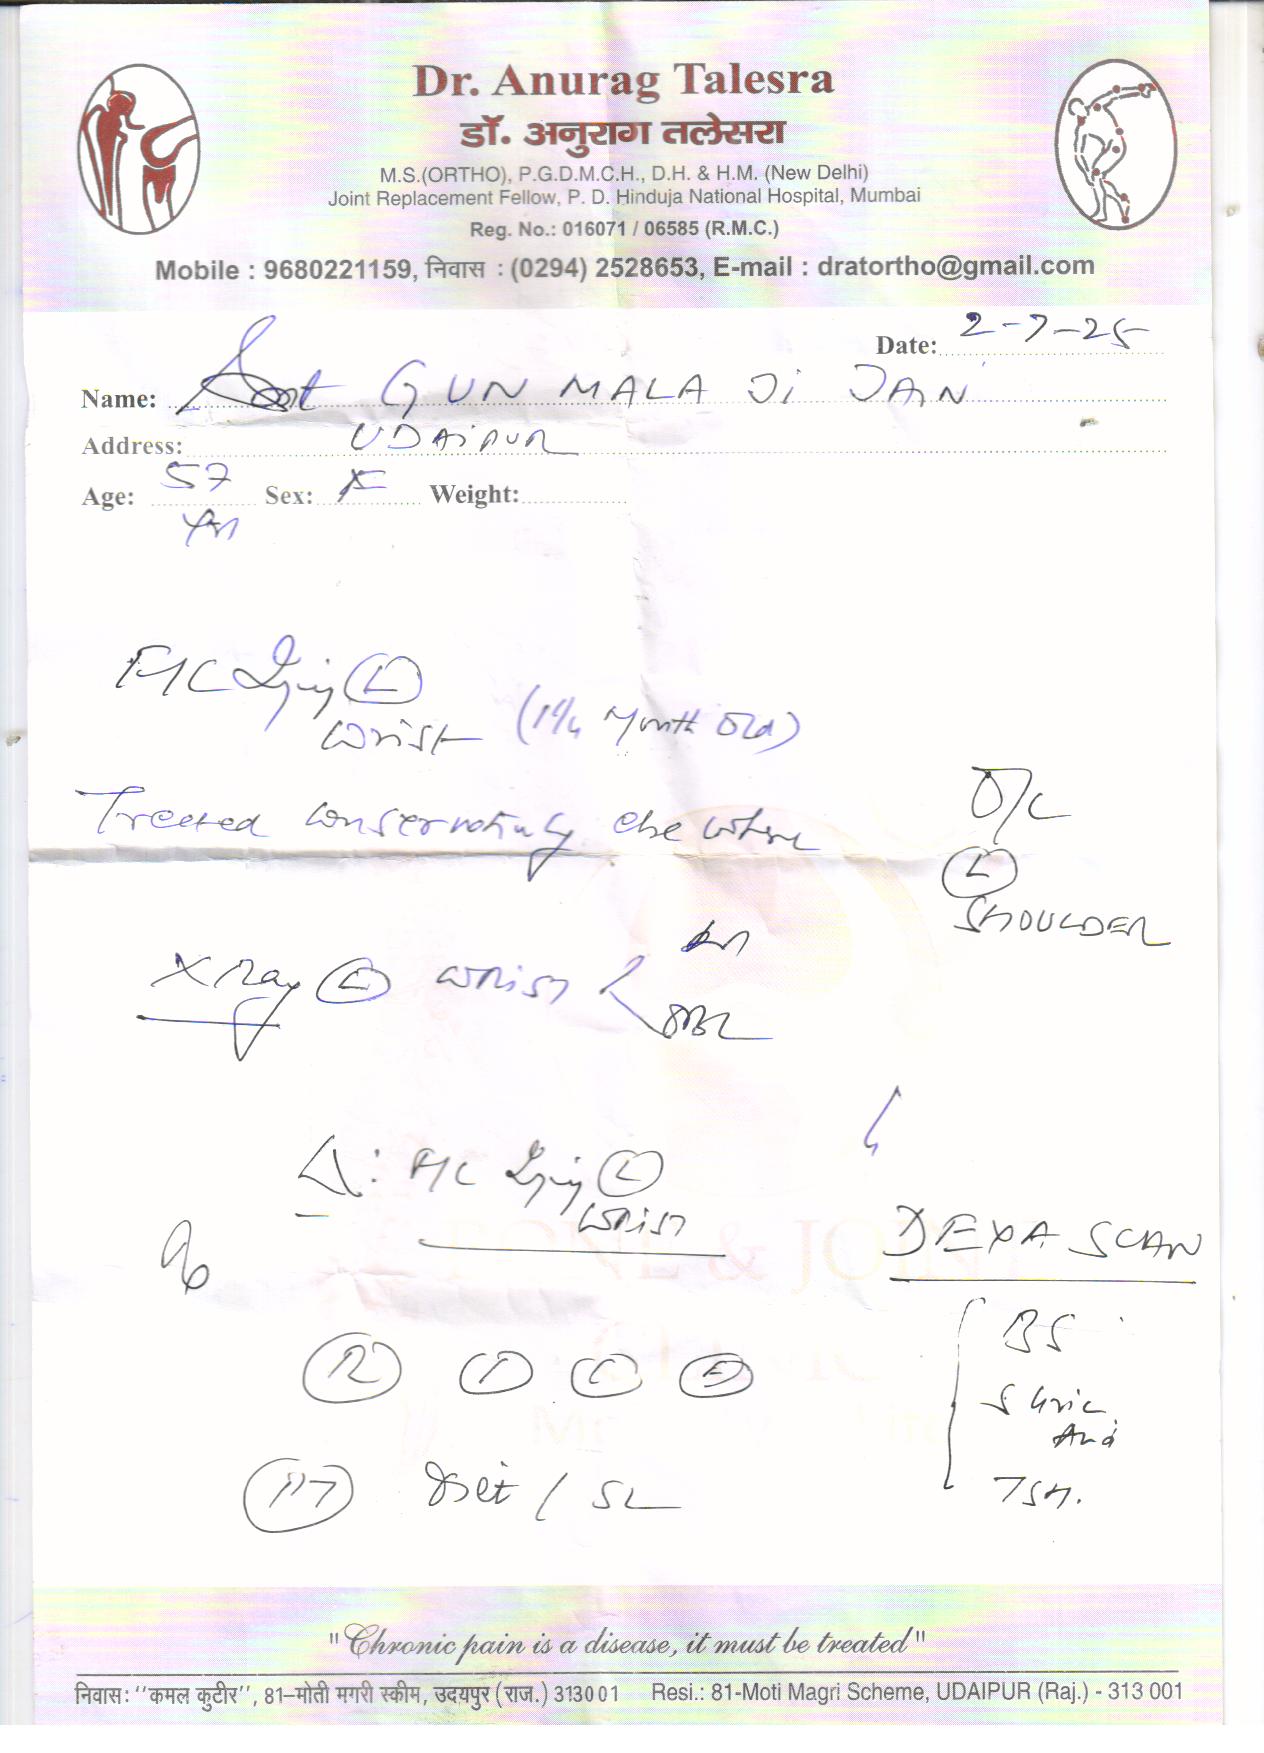 Dr. Anurag Talesra
डॉ. अनुराग तलेसरा
M.S.(ORTHO), P.G.D.M.C.H., D.H. & H.M. (New Delhi)
Joint Replacement Fellow, P. D. Hinduja National Hospital, Mumbai
Reg. No.: 016071 / 06585 (R.M.C.)
Mobile : 9680221159, निवास : (0294) 2528653, E-mail : dratortho@gmail.com
Date: 2-7-25
Name: GUN MALA Ji JAN
Address: UDAIPUR
Age: 57 Sex: F Weight:
Injury L
wrist (1 1/2 Month Old)
Treated conservatively else where
O/C
L
SHOULDER
X Ray L WRIST
Δ: Injury L
WRIST
DEXA SCAN
R I C E
BS
S Uric
Acid
TSH.
PT Diet / SL
BONE & JOINT
"Chronic pain is a disease, it must be treated"
निवास: "कमल कुटीर", 81–मोती मगरी स्कीम, उदयपुर (राज.) 313001 Resi.: 81-Moti Magri Scheme, UDAIPUR (Raj.) - 313 001